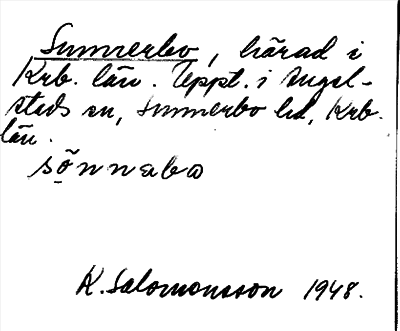 Sunnerbo, härad i
Krb. län. Uppt. i Angel-
stads sn, Sunnerbo hd, Krb.
län.
sọ̃nnabo
K. Salomonsson 1948.